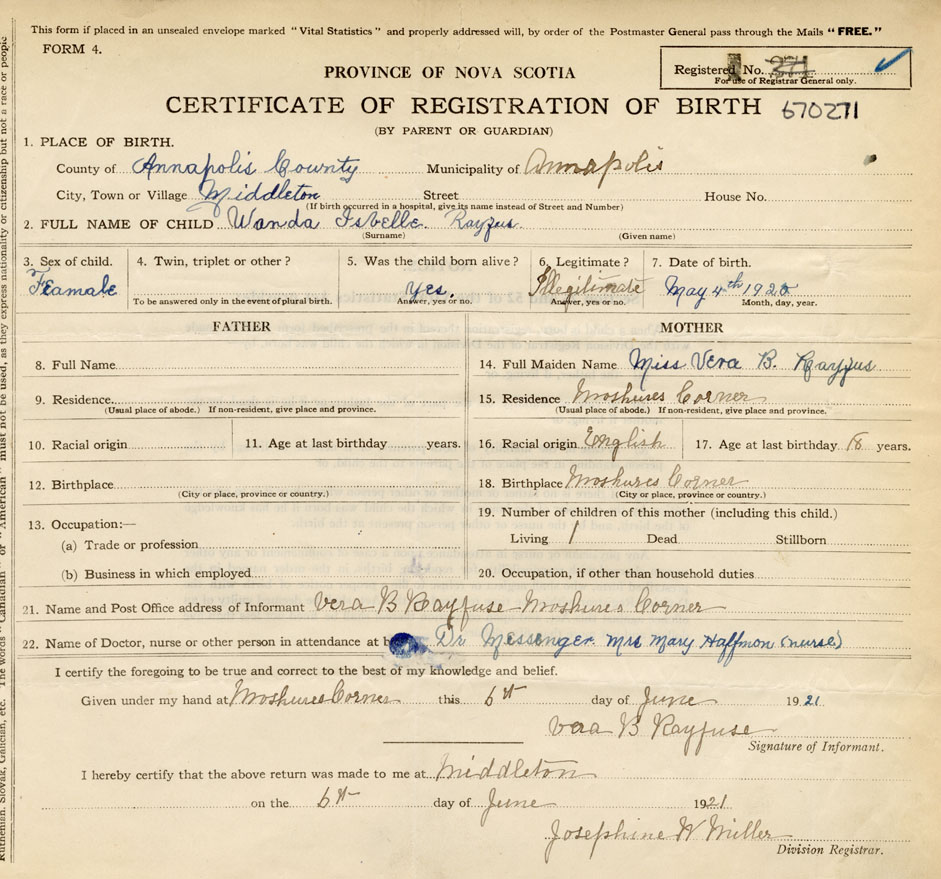 This form if placed in an unsealed envelope marked "Vital Statistics" and properly addressed will, by order of the Postmaster General pass through the Mails "FREE."
FORM 4.
Registered No. 271
For use of Registrar General only.
PROVINCE OF NOVA SCOTIA
CERTIFICATE OF REGISTRATION OF BIRTH 670271
(BY PARENT OR GUARDIAN)
1. PLACE OF BIRTH.
County of Annapolis County Municipality of Annapolis
City, Town or Village Middleton Street House No.
(If birth occurred in a hospital, give its name instead of Street and Number)
2. FULL NAME OF CHILD Wanda Isbelle Rayfus.
(Surname) (Given name)
3. Sex of child. 4. Twin, triplet or other? 5. Was the child born alive? 6. Legitimate? 7. Date of birth.
Feamale Yes. Illegitimate May 4th 1920
To be answered only in the event of plural birth. Answer, yes or no. Answer, yes or no. Month, day, year.
FATHER MOTHER
8. Full Name 14. Full Maiden Name Miss Vera B. Rayfus
9. Residence 15. Residence Moshures Corner
(Usual place of abode.) If non-resident, give place and province. (Usual place of abode.) If non-resident, give place and province.
10. Racial origin 11. Age at last birthday years. 16. Racial origin English 17. Age at last birthday 18 years.
12. Birthplace 18. Birthplace Moshures Corner
(City or place, province or country.) (City or place, province or country.)
13. Occupation:— 19. Number of children of this mother (including this child.)
(a) Trade or profession Living 1 Dead Stillborn
(b) Business in which employed 20. Occupation, if other than household duties
21. Name and Post Office address of Informant Vera B Rayfuse Moshures Corner
22. Name of Doctor, nurse or other person in attendance at Dr Messenger. Mrs Mary Haffmon (nurse)
I certify the foregoing to be true and correct to the best of my knowledge and belief.
Given under my hand at Moshures Corner this 6th day of June 1921
Vera B Rayfuse
Signature of Informant.
I hereby certify that the above return was made to me at Middleton
on the 6th day of June 1921
Josephine W Miller
Division Registrar.
Ruthenian, Slovak, Galician, etc. The words "Canadian" or "American" must not be used, as they express nationality or citizenship but not a race or people